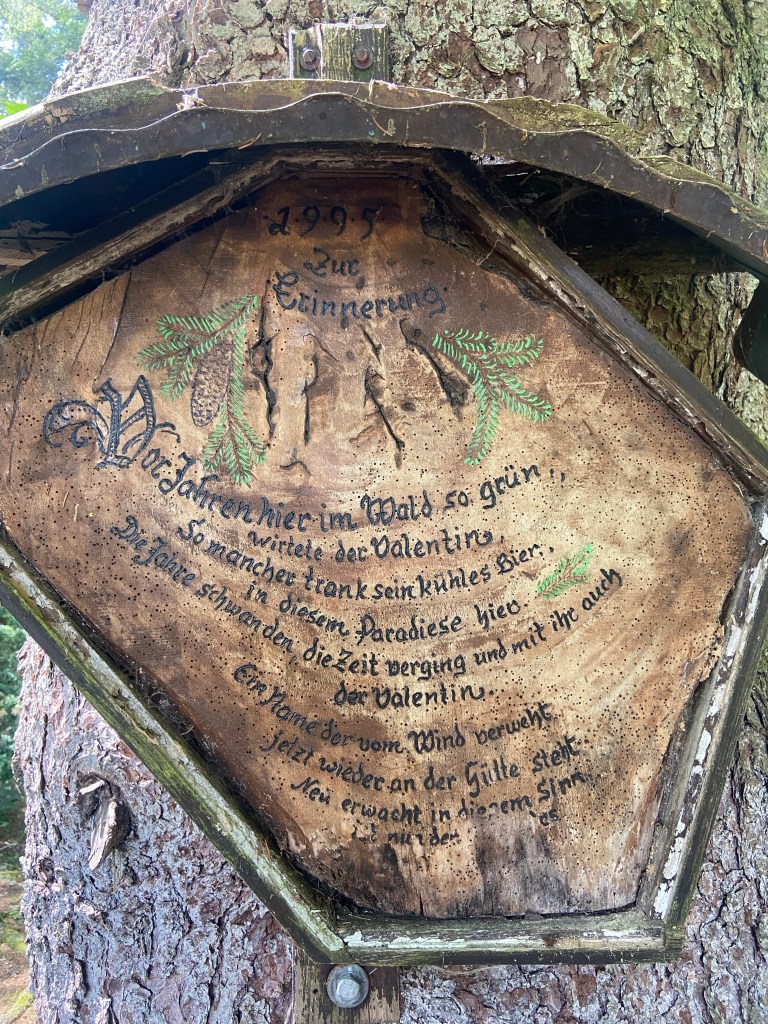 1995
Zur
Erinnerung
Vor Jahren hier im Wald so grün,
wirtete der Valentin.
So mancher trank sein kühles Bier,
in diesem Paradiese hier.
Die Jahre schwanden, die Zeit verging und mit ihr auch
der Valentin.
Ein Name der vom Wind verweht
jetzt wieder an der Hütte steht.
Neu erwacht in diesem Sinn
nur der